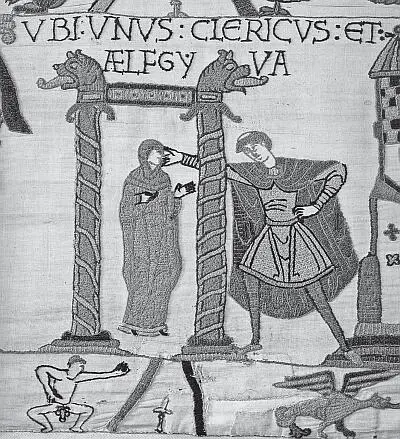 VBI : VNVS : CLERICVS : ET :
ÆLFGY VA